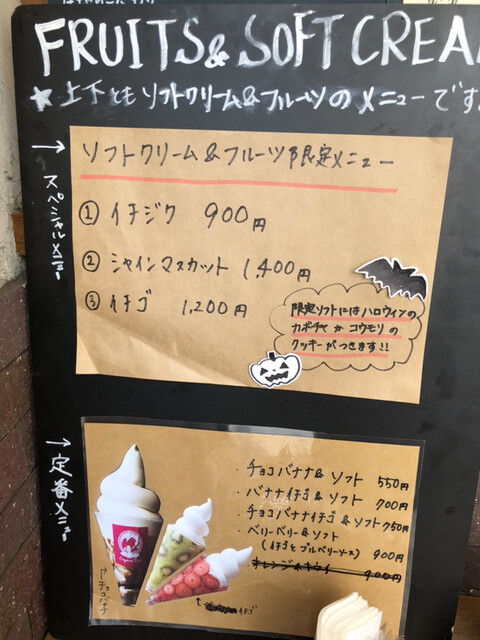 FRUITS & SOFT CREA
★上下ともソフトクリーム&フルーツのメニューです
→スペシャルメニュー
ソフトクリーム&フルーツ限定メニュー
① イチジク 900円
② シャインマスカット 1,400円
③ イチゴ 1,200円
限定ソフトにはハロウィンの
カボチャかコウモリの
クッキーがつきます!!
→定番メニュー
・チョコバナナ&ソフト 550円
・バナナイチゴ&ソフト 700円
・チョコバナナイチゴ&ソフト 750円
・ベリーベリー&ソフト
(イチゴとブルーベリーソース) 900円
オレンジ&キウイ 900円
↑チョコバナナ
イチゴ